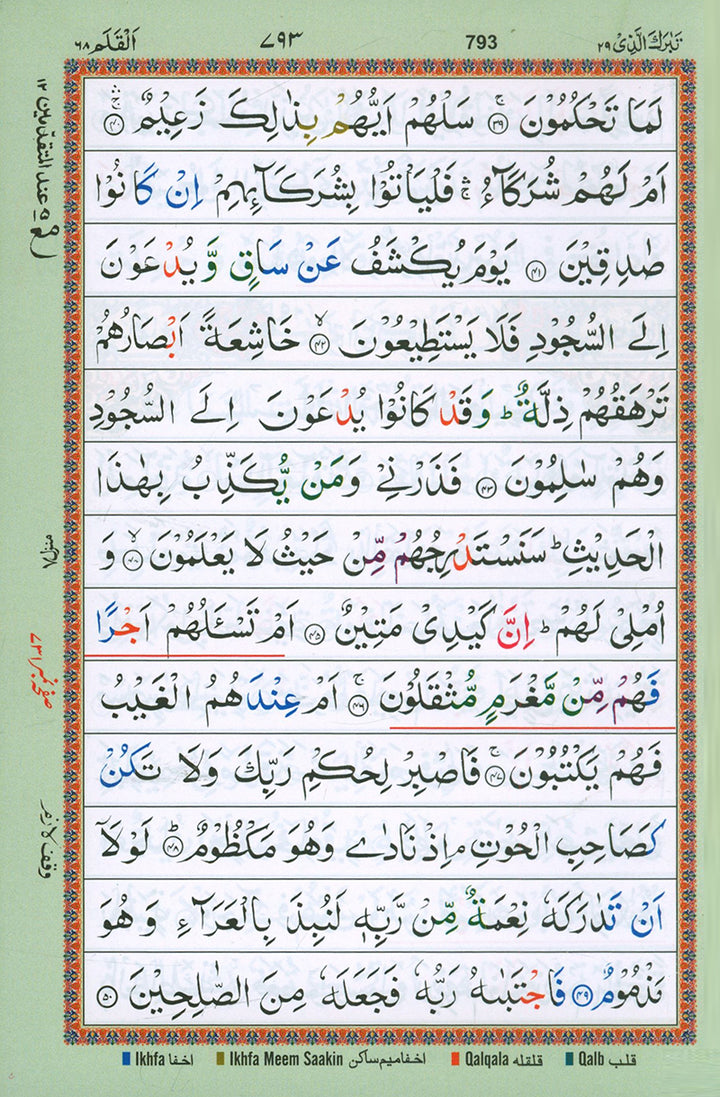 تَبٰرَكَ الَّذِیْ ٢٩ 793 ٧٩٣ اَلْقَلَم ٦٨
لَمَا تَحْكُمُوْنَ ۚ‏﴿۳۹﴾ سَلْهُمْ اَیُّهُمْ بِذٰلِكَ زَعِیْمٌ ۚۛ‏﴿۴۰﴾
اَمْ لَهُمْ شُرَكَآءُ ۚۛ فَلْیَاْتُوْا بِشُرَكَآئِهِمْ اِنْ كَانُوْا
صٰدِقِیْنَ ﴿۴۱﴾ یَوْمَ یُكْشَفُ عَنْ سَاقٍ وَّ یُدْعَوْنَ
اِلَی السُّجُوْدِ فَلَا یَسْتَطِیْعُوْنَ ۙ‏﴿۴۲﴾ خَاشِعَةً اَبْصَارُهُمْ
تَرْهَقُهُمْ ذِلَّةٌ ؕ وَقَدْ كَانُوْا یُدْعَوْنَ اِلَی السُّجُوْدِ
وَهُمْ سٰلِمُوْنَ ﴿۴۳﴾ فَذَرْنِیْ وَمَنْ یُّكَذِّبُ بِهٰذَا
الْحَدِیْثِ ؕ سَنَسْتَدْرِجُهُمْ مِّنْ حَیْثُ لَا یَعْلَمُوْنَ ۙ‏﴿۴۴﴾ وَ
اُمْلِیْ لَهُمْ ؕ اِنَّ كَیْدِیْ مَتِیْنٌ ﴿۴۵﴾ اَمْ تَسْـَٔلُهُمْ اَجْرًا
فَهُمْ مِّنْ مَّغْرَمٍ مُّثْقَلُوْنَ ۚ‏﴿۴۶﴾ اَمْ عِنْدَهُمُ الْغَیْبُ
فَهُمْ یَكْتُبُوْنَ ﴿۴۷﴾ فَاصْبِرْ لِحُكْمِ رَبِّكَ وَلَا تَكُنْ
كَصَاحِبِ الْحُوْتِ ۘ اِذْ نَادٰی وَهُوَ مَكْظُوْمٌ ؕ‏﴿۴۸﴾ لَوْلَاۤ
اَنْ تَدٰرَكَهٗ نِعْمَةٌ مِّنْ رَّبِّهٖ لَنُبِذَ بِالْعَرَآءِ وَ هُوَ
مَذْمُوْمٌ ﴿۴۹﴾ فَاجْتَبٰىهُ رَبُّهٗ فَجَعَلَهٗ مِنَ الصّٰلِحِیْنَ ﴿۵۰﴾
عند المتقدمین ١٢
منزل
صفحہ نمبر ٧٣١
وقف لازم
Ikhfa اخفا Ikhfa Meem Saakin اخفا میم ساکن Qalqala قلقله Qalb قلب